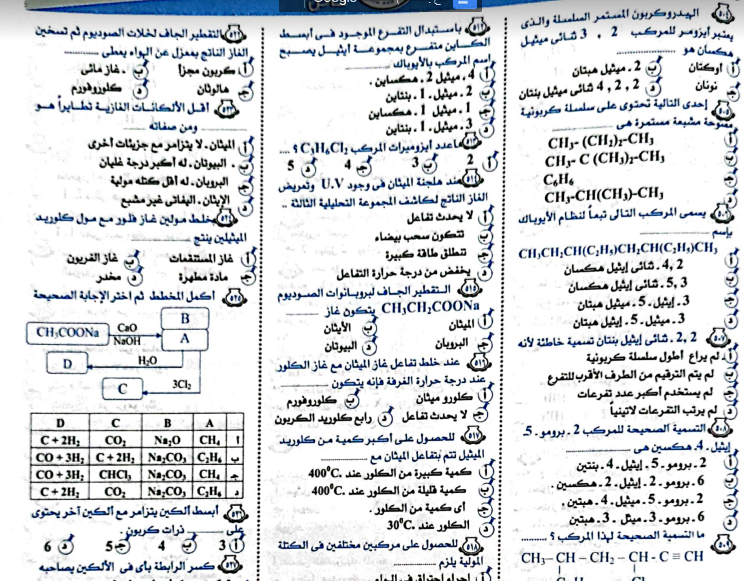 ٥٠٤ الهيدروكربون المستمر السلسلة والذى
يعتبر أيزومر للمركب 2 ، 3 ثنائى ميثيل
هكسان هو
أ أوكتان
ب 2 ـ ميثيل هبتان
ج نونان
د 2 , 2 , 4 ثنائى ميثيل بنتان
٥٠٥ إحدى التالية تحتوى على سلسلة كربونية
مفتوحة مشبعة مستمرة هى
أ CH₃- (CH₂)₂-CH₃
ب CH₃- C (CH₃)₂-CH₃
ج C₆H₆
د CH₃-CH(CH₃)-CH₃
٥٠٦ يسمى المركب التالى تبعاً لنظام الأيوباك
بإسم
CH₃CH₂CH(C₂H₅)CH₂CH(C₂H₅)CH₃
أ 4,2 ـ ثنائى إيثيل هكسان
ب 5,3 ـ ثنائى إيثيل هكسان
ج 3 ـ إيثيل ـ 5 ـ ميثيل هبتان
د 3 ـ ميثيل ـ 5 ـ إيثيل هبتان
٥٠٧ 2,2 ـ ثنائى إيثيل بنتان تسمية خاطئة لأنه
أ لم يراع أطول سلسلة كربونية
ب لم يتم الترقيم من الطرف الأقرب للتفرع
ج لم يستخدم أكبر عدد تفرعات
د لم يرتب التفرعات لاتينياً
٥٠٨ التسمية الصحيحة للمركب 2 ـ برومو ـ 5 ـ
إيثيل ـ 4 ـ هكسين هى
أ 2 ـ برومو ـ 5 ـ إيثيل ـ 4 ـ بنتين
ب 6 ـ برومو ـ 2 ـ إيثيل ـ 2 ـ هكسين
ج 2 ـ برومو ـ 5 ـ ميثيل ـ 4 ـ هبتين
د 6 ـ برومو ـ 3 ـ ميثل ـ 3 ـ هبتين
٥٠٩ ما التسمية الصحيحة لهذا المركب ؟
CH₃– CH – CH₂ – CH - C ≡ CH
باستبدال التفرع الموجود فى أبسط
الكاين متفرع بمجموعة إيثيل يصبح
اسم المركب بالأيوباك
أ 4 ـ ميثيل ـ 2 ـ هكساين
ب 2 ـ ميثيل ـ 1 ـ بنتاين
ج 1 ـ ميثيل ـ 1 ـ هكساين
د 3 ـ ميثيل ـ 1 ـ بنتاين
ما عدد أيزوميرات المركب C₃H₆Cl₂ ؟
أ 2
ب 3
ج 4
د 5
عند هلجنة الميثان فى وجود U.V وتعريض
الغاز الناتج لكاشف المجموعة التحليلية الثالثة
أ لا يحدث تفاعل
ب تتكون سحب بيضاء
ج تنطلق طاقة كبيرة
د يخفض من درجة حرارة التفاعل
٥١٥ التقطير الجاف لبروبانوات الصوديوم
CH₃CH₂COONa يتكون غاز
أ الميثان
ب الأيثان
ج البروبان
د البيوتان
٥١٦ عند خلط تفاعل غاز الميثان مع غاز الكلور
عند درجة حرارة الغرفة فإنه يتكون
أ كلورو ميثان
ب كلوروفورم
ج لا يحدث تفاعل
د رابع كلوريد الكربون
٥١٧ للحصول على أكبر كمية من كلوريد
الميثيل تتم بتفاعل الميثان مع
أ كمية كبيرة من الكلور عند 400⁰C.
ب كمية قليلة من الكلور عند 400⁰C.
ج أى كمية من الكلور .
د الكلور عند 30⁰C.
٥١٨ للحصول على مركبين مختلفين فى الكتلة
المولية يلزم
أ إجراء احتراق فى الهواء
التقطير الجاف لخلات الصوديوم ثم تسخين
الغاز الناتج بمعزل عن الهواء يعطى
أ كربون مجزأ
ب غاز مائى
ج هالوثان
د كلوروفورم
أقل الألكانات الغازية تطايراً هو
ومن صفاته
أ الميثان ـ لا يتزامر مع جزيئات أخرى
ب البيوتان ـ له أكبر درجة غليان
ج البروبان ـ له أقل كتلة مولية
د الإيثان ـ اليفاتى غير مشبع
٥٢٤ بخلط مولين غاز فلور مع مول كلوريد
الميثيلين ينتج
أ غاز المستنقعات
ب غاز الفريون
ج مادة مطهرة
د مخدر
٥٢٥ أكمل المخطط ثم اختر الإجابة الصحيحة
CH₃COONa
CaO
NaOH
B
A
H₂O
D
C
3Cl₂
D C B A
C + 2H₂ CO₂ Na₂O CH₄ أ
CO + 3H₂ C + 2H₂ Na₂CO₃ C₂H₆ ب
CO + 3H₂ CHCl₃ Na₂CO₃ CH₄ ج
C + 2H₂ CO₂ Na₂CO₃ C₂H₆ د
٥٢٦ أبسط ألكين يتزامر مع ألكين آخر يحتوى
على ذرات كربون
أ 3
ب 4
ج 5
د 6
٥٢٧ كسر الرابطة باى فى الألكين يصاحبه